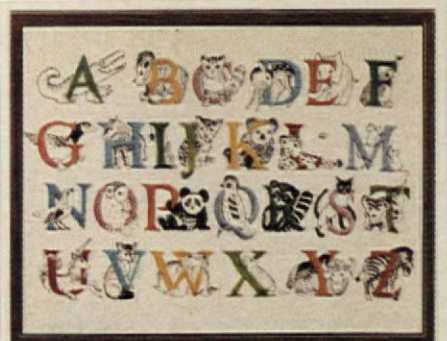 ABCDEF
GHIJKLM
NOPQRST
UVWXYZ